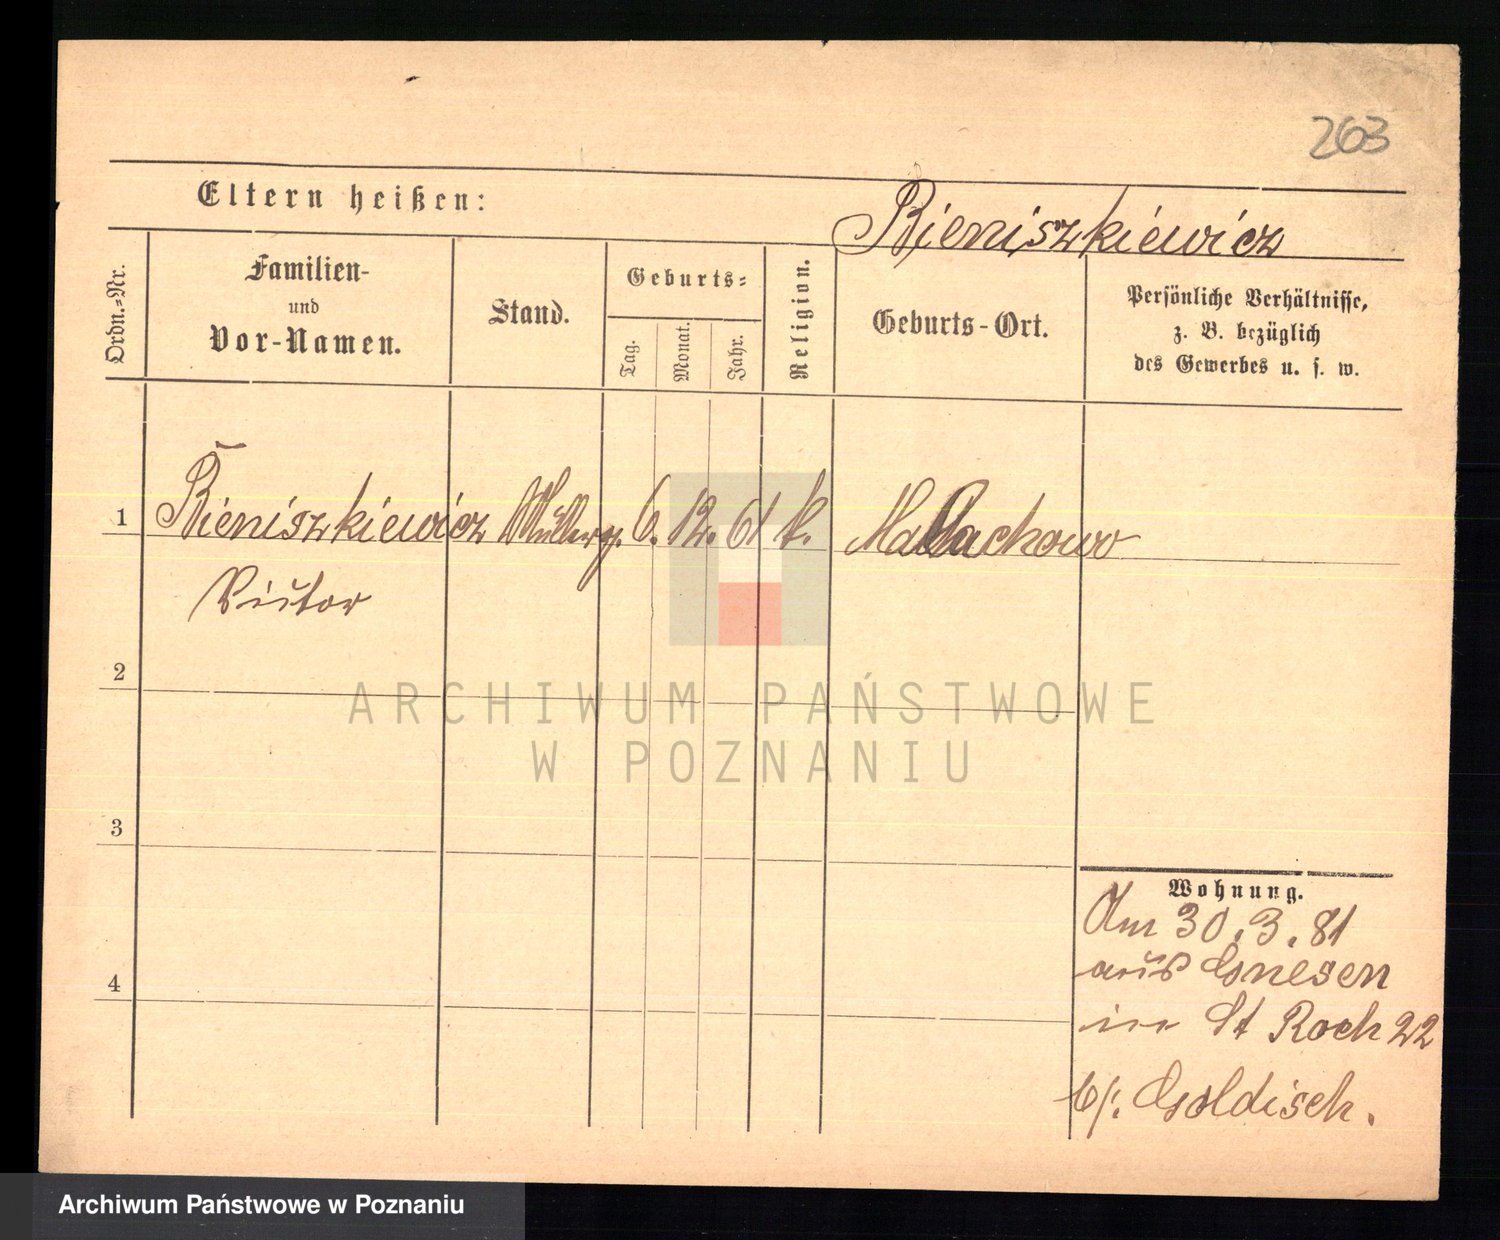 263
Eltern heißen:
Bieniszkiewicz
Ordn.-Nr.
Familien-
und
Vor-Namen.
Stand.
Geburts-
Tag.
Monat.
Jahr.
Religion.
Geburts-Ort.
Persönliche Verhältnisse,
z. B. bezüglich
des Gewerbes u. s. w.
1 Bieniszkiewicz Müllerg. 6. 12. 61 k. Mallachowo
Victor
2
3
4
ARCHIWUM PAŃSTWOWE
W POZNANIU
Wohnung.
Am 30. 3. 81
aus Gnesen
in St Roch 22
b/: Goldisch.
Archiwum Państwowe w Poznaniu